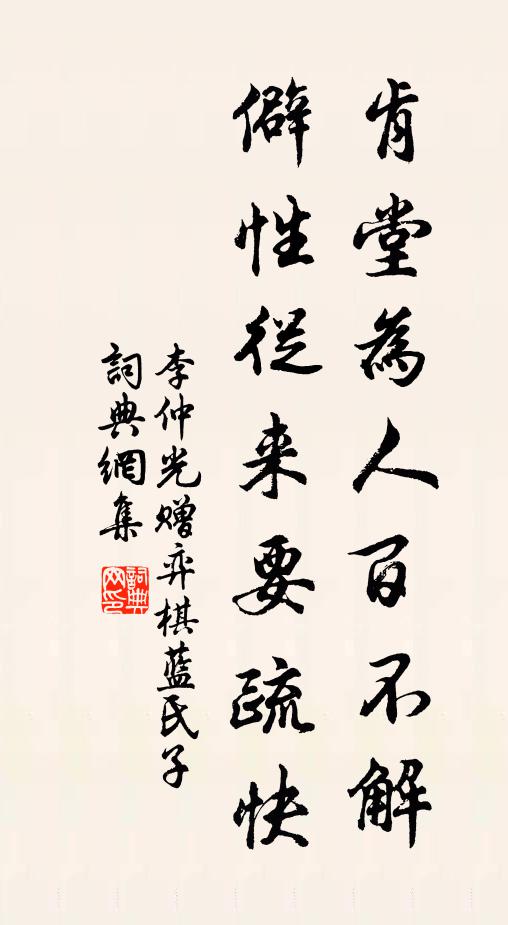 肯堂為人百不解
僻性從来要疏快
李仲光贈弈棋藍氏子
詞典網集
詞典網印